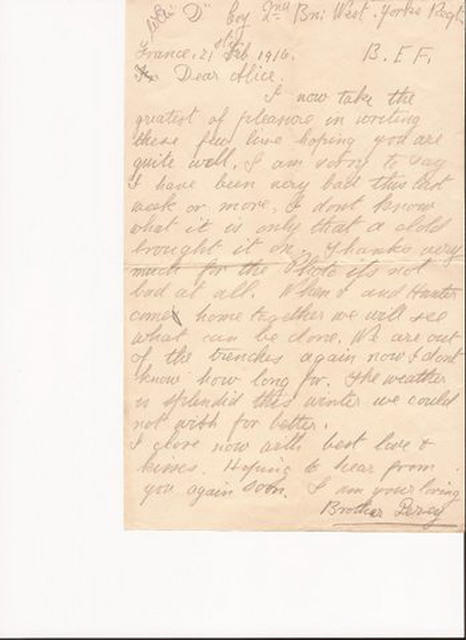 "D" Coy 2nd Bn: West. Yorks Regt
France. 21st Feb 1916. B. E F.
Dear Alice.
I now take the
greatest of pleasure in writing
these few line hoping you are
quite well. I am sorry to say
I have been very bad this last
week or more, I dont know
what it is only that a cold
brought it on. Thanks very
much for the Photo its not
bad at all. When I and Hunter
come home together we will see
what can be done. We are out
of the trenches again now I dont
know how long for. The weather
is splendid this winter we could
not wish for better.
I close now with best love &
kisses. Hoping to hear from
you again soon. I am your loving
Brother Percy